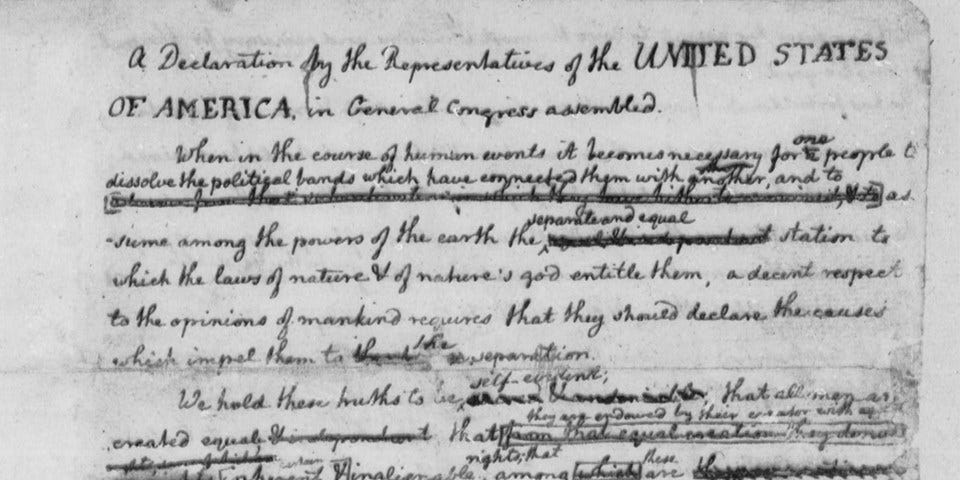 A Declaration by the Representatives of the UNITED STATES
OF AMERICA, in General Congress assembled.
When in the course of human events it becomes necessary for
one
a people t
dissolve the political bands which have connected them with another, and to
as
separate and equal
-sume among the powers of the earth the station to
which the laws of nature & of nature's god entitle them, a decent respect
to the opinions of mankind requires that they should declare the causes
which impel them to the separation.
self-evident;
We hold these truths to be that all men ar
they are endowed by their creator with
created equal & independent that from that equal creation they
rights; that these
inherent & inalienable, among which are